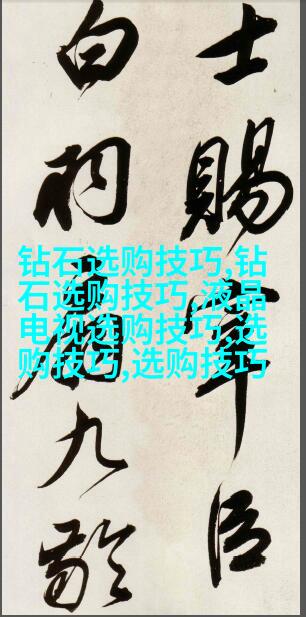 士賜宰臣
白羽扇九齡
钻石选购技巧,钻
石选购技巧,液晶
电视选购技巧,选
购技巧,选购技巧